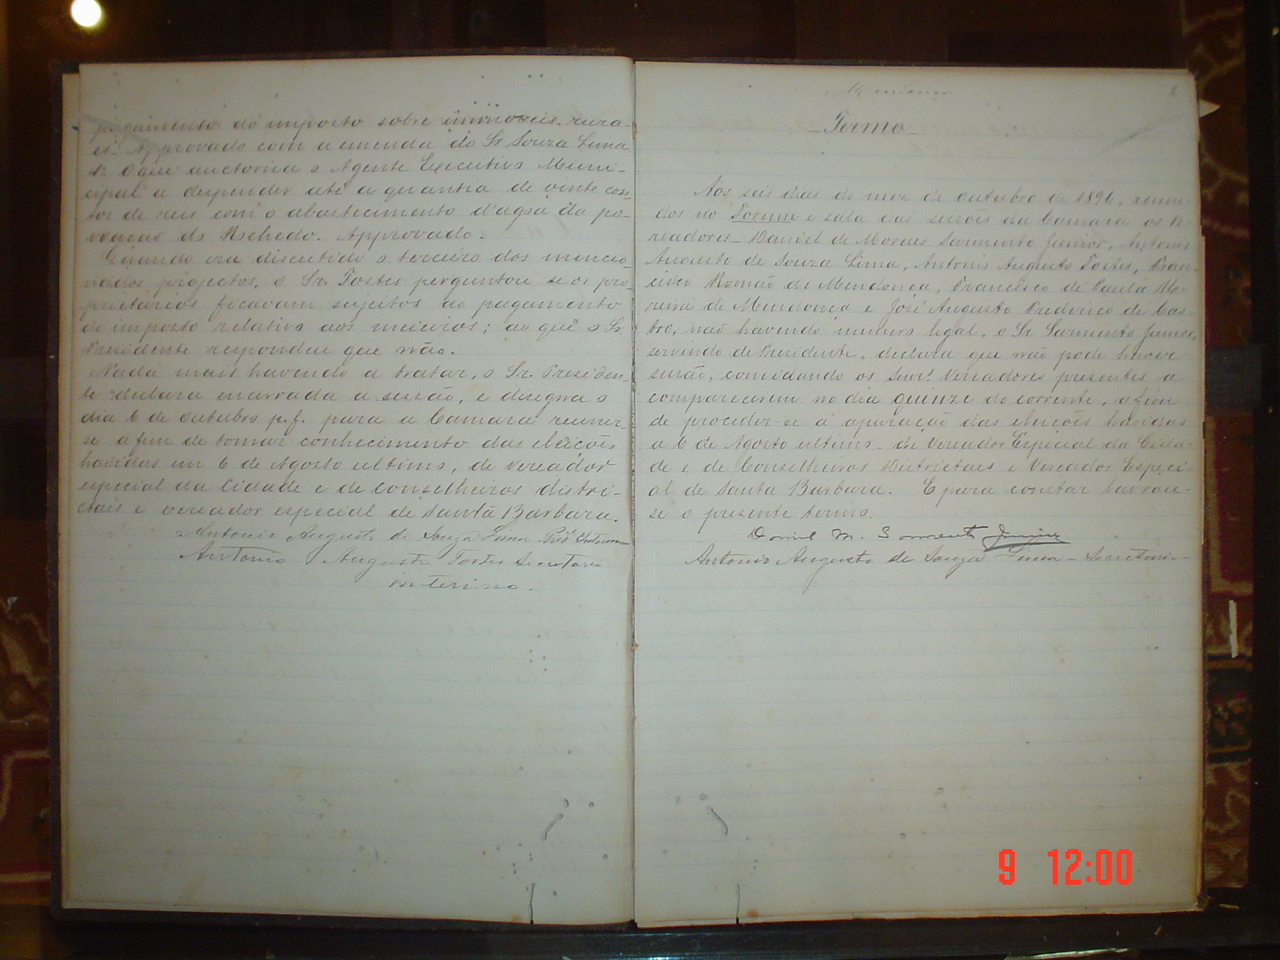 pagamento do imposto sobre immoveis rura-
es. Approvado com a emenda do Sr Souza Lima
O que auctorisa o Agente Executivo Muni-
cipal a despender até a quantia de vinte con-
tos de reis com o abastecimento d'agua da po-
voação do Rochedo. Approvado.
Quando era discutido o terceiro dos mencio-
nados projectos, o Sr. Fortes perguntou se os pro-
prietarios ficavam sujeitos ao pagamento
do imposto relativo aos meieiros; ao que o Sr
Presidente respondeu que não.
Nada mais havendo a tratar, o Sr. Presiden-
te declara encerrada a sessão, e designa o
dia 6 de outubro p.f. para a Camara reunir
se afim de tomar conhecimento das eleições
havidas em 6 de Agosto ultimo, de vereador
especial da Cidade e de conselheiros distri-
ctais e vereador especial de Santa Barbara.
Antonio Augusto de Souza Lima - Pres Interino
Antonio Augusto Fortes Secretario
interino.
2
Termo
Aos seis dias do mez de outubro de 1896, reuni-
dos no Forum e sala das sessões da Camara os Ve-
readores - Daniel de Moraes Sarmento Junior, Antonio
Augusto de Souza Lima, Antonio Augusto Fortes, Fran-
cisco Romão de Mendonça, Francisco de Paula Mo-
reira de Mendonça e José Augusto Frederico de Cas-
tro, não havendo numero legal, o Sr Sarmento Junior,
servindo de Presidente, declara que não pode haver
sessão, convidando os Senrs. Vereadores presentes a
comparecerem no dia quinze do corrente, afim
de proceder-se á apuração das eleições havidas
a 6 de Agosto ultimo - de Vereador Especial da Cida-
de e de Conselheiros Districtaes e Vereador Especi-
al de Santa Barbara. E para constar lavrou-
se o presente termo.
Daniel M. Sarmento Junior
Antonio Augusto de Souza Lima - Secretario -
9 12:00